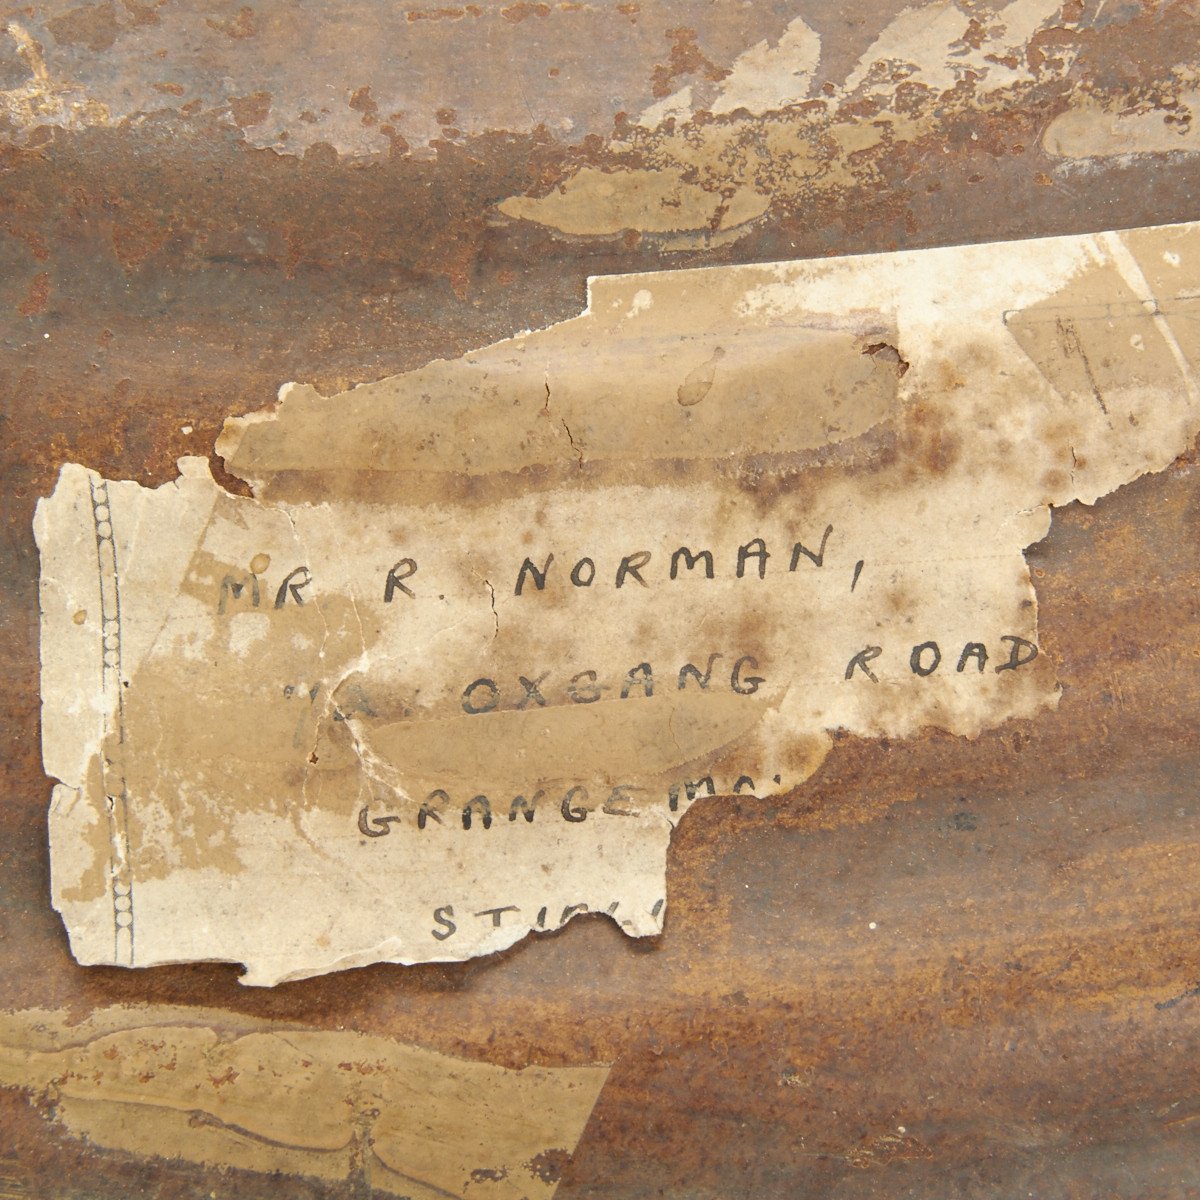 MR R. NORMAN,
OXGANG ROAD
GRANGEMO
STIRLI